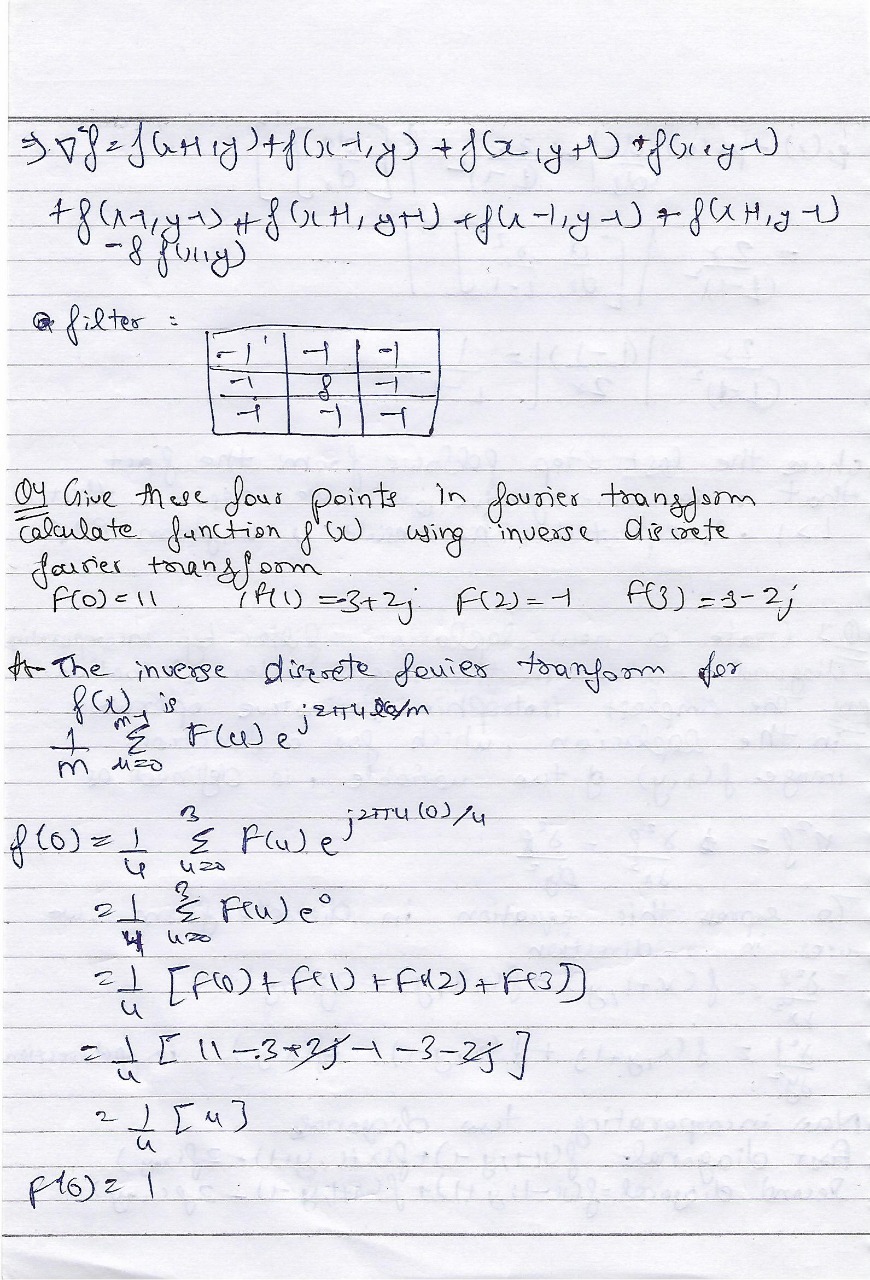 ⇒ ∇²f = f(x+1,y) + f(x-1,y) + f(x,y+1) + f(x,y-1)
+ f(x-1,y-1) + f(x+1,y+1) + f(x-1,y-1) + f(x+1,y-1)
-8 f(x,y)
filter :
-1 -1 -1
-1 8 -1
-1 -1 -1
Q4 Give these four points in fourier transform
calculate function f(x) using inverse discrete
fourier transform
F(0) = 11 F(1) = -3+2j F(2) = -1 F(3) = -3-2j
A- The inverse discrete fouier tranform for
f(x) is
1/m m-1 Σ u=0 F(u) e^j2πux/m
f(0) = 1/4 3 Σ u=0 F(u) e^j2πu(0)/4
= 1/4 3 Σ u=0 F(u) e^0
= 1/4 [F(0) + F(1) + F(2) + F(3)]
= 1/4 [ 11 - 3 + 2j - 1 - 3 - 2j ]
= 1/4 [4]
f(0) = 1